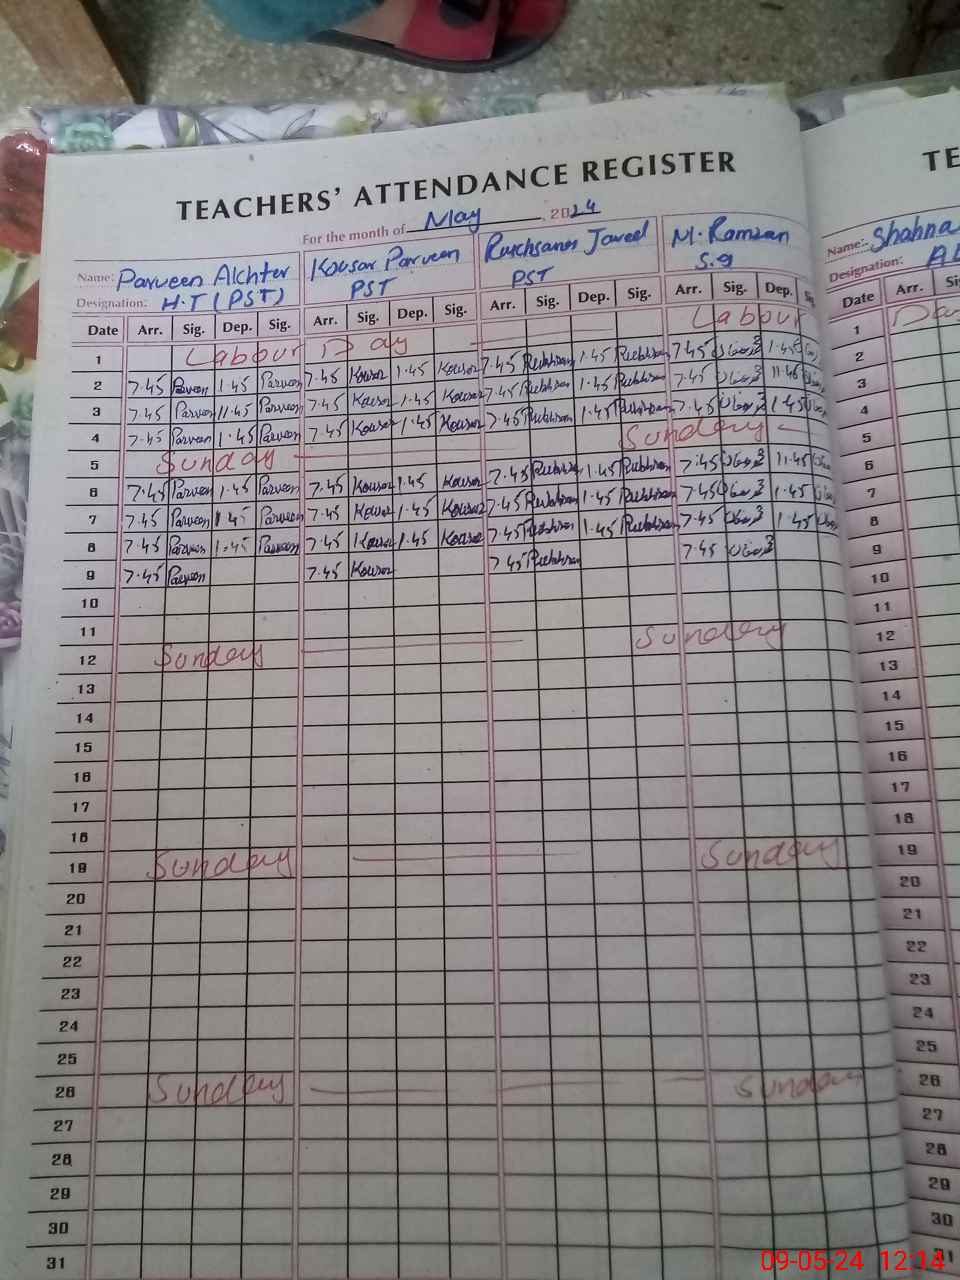 TEACHERS' ATTENDANCE REGISTER
For the month of May, 2024
Name: Parveen Akhter Kousar Parveen Rukhsana Javed M. Ramzan
Designation: H.T (PST) PST PST
Date Arr. Sig. Dep. Sig. Arr. Sig. Dep. Sig. Arr. Sig. Dep. Sig. Arr. Sig. Dep.
1 Labour Day Labour
2 7.45 Parveen 1.45 Parveen 7.45 Kousar 1.45 Kousar 7.45 1.45 7.45 1.45
3 7.45 Parveen 1.45 Parveen 7.45 Kousar 1.45 Kousar 7.45 1.45 7.45
4 7.45 Parveen 1.45 Parveen 7.45 Kousar 1.45 Kousar 7.45 1.45 7.45 1.45
5 Sunday Sunday
6 7.45 Parveen 1.45 Parveen 7.45 Kousar 1.45 Kousar 7.45 1.45 7.45
7 7.45 Parveen 1.45 Parveen 7.45 Kousar 1.45 Kousar 7.45 1.45 7.45 1.45
8 7.45 Parveen 1.45 Parveen 7.45 Kousar 1.45 Kousar 7.45 1.45 7.45 1.45
9 7.45 Parveen 7.45 Kousar 7.45 7.45
10
11
12 Sunday Sunday
13
14
15
16
17
18
19 Sunday Sunday
20
21
22
23
24
25
26 Sunday Sunday
27
28
29
30
31
TE
Name:-
Designation:
Date Arr.
1
2
3
4
5
6
7
8
9
10
11
12
13
14
15
16
17
18
19
20
21
22
23
24
25
26
27
28
29
30
31
09-05-24 12:14